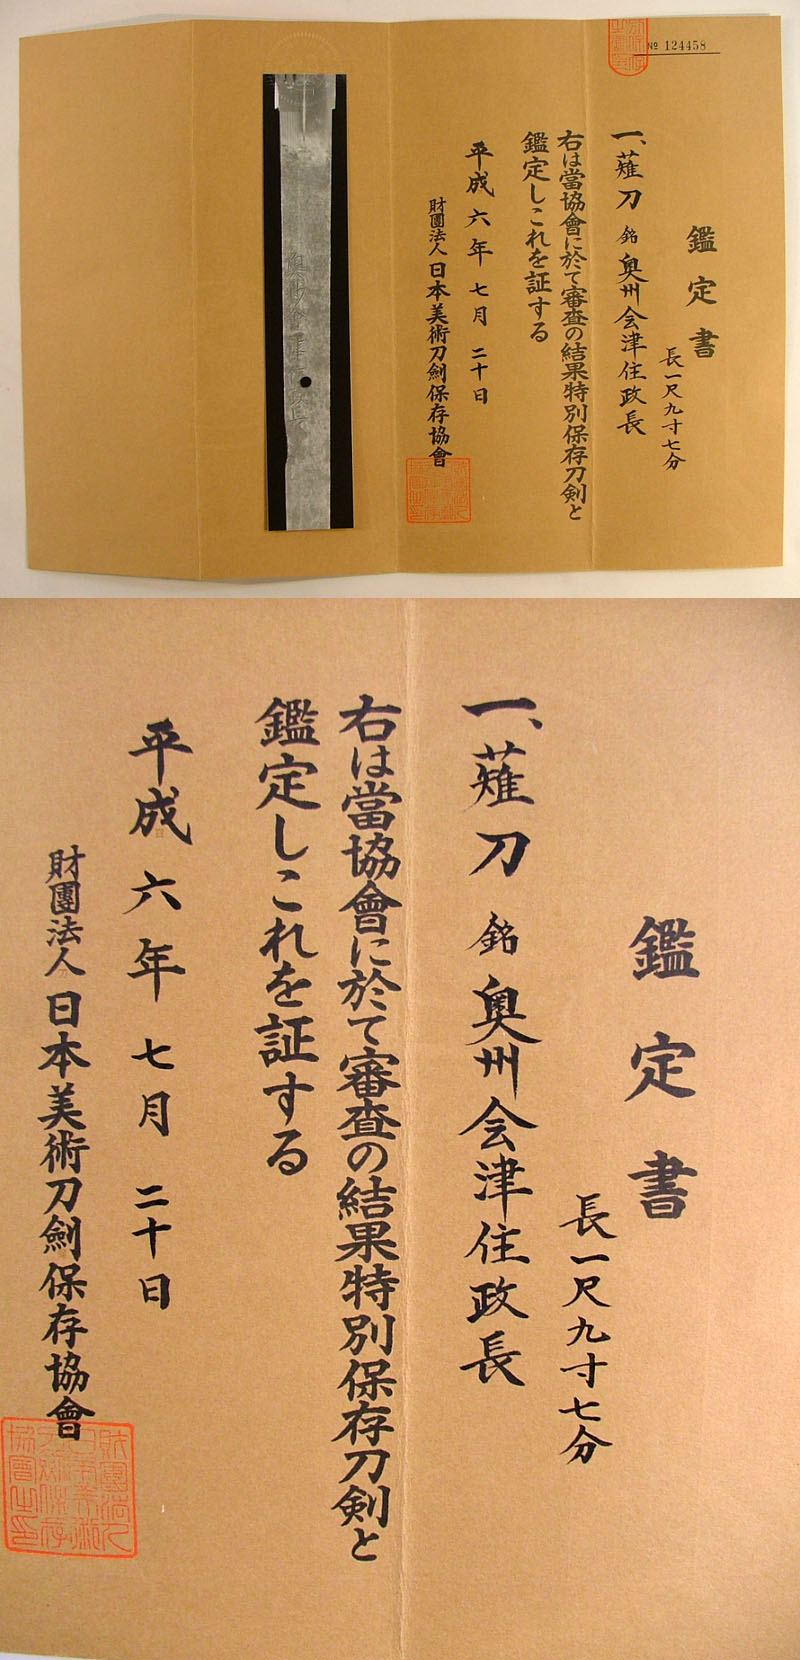 № 124458
鑑定書
長一尺九寸七分
一、薙刀 銘 奥州会津住政長
右は當協會に於て審査の結果特別保存刀剣と
鑑定しこれを証する
平成六年七月二十日
財團法人日本美術刀劍保存協會
奥州會津住政長
鑑定書
長一尺九寸七分
一、薙刀 銘 奥州会津住政長
右は當協會に於て審査の結果特別保存刀剣と
鑑定しこれを証する
平成六年七月二十日
財團法人日本美術刀劍保存協會